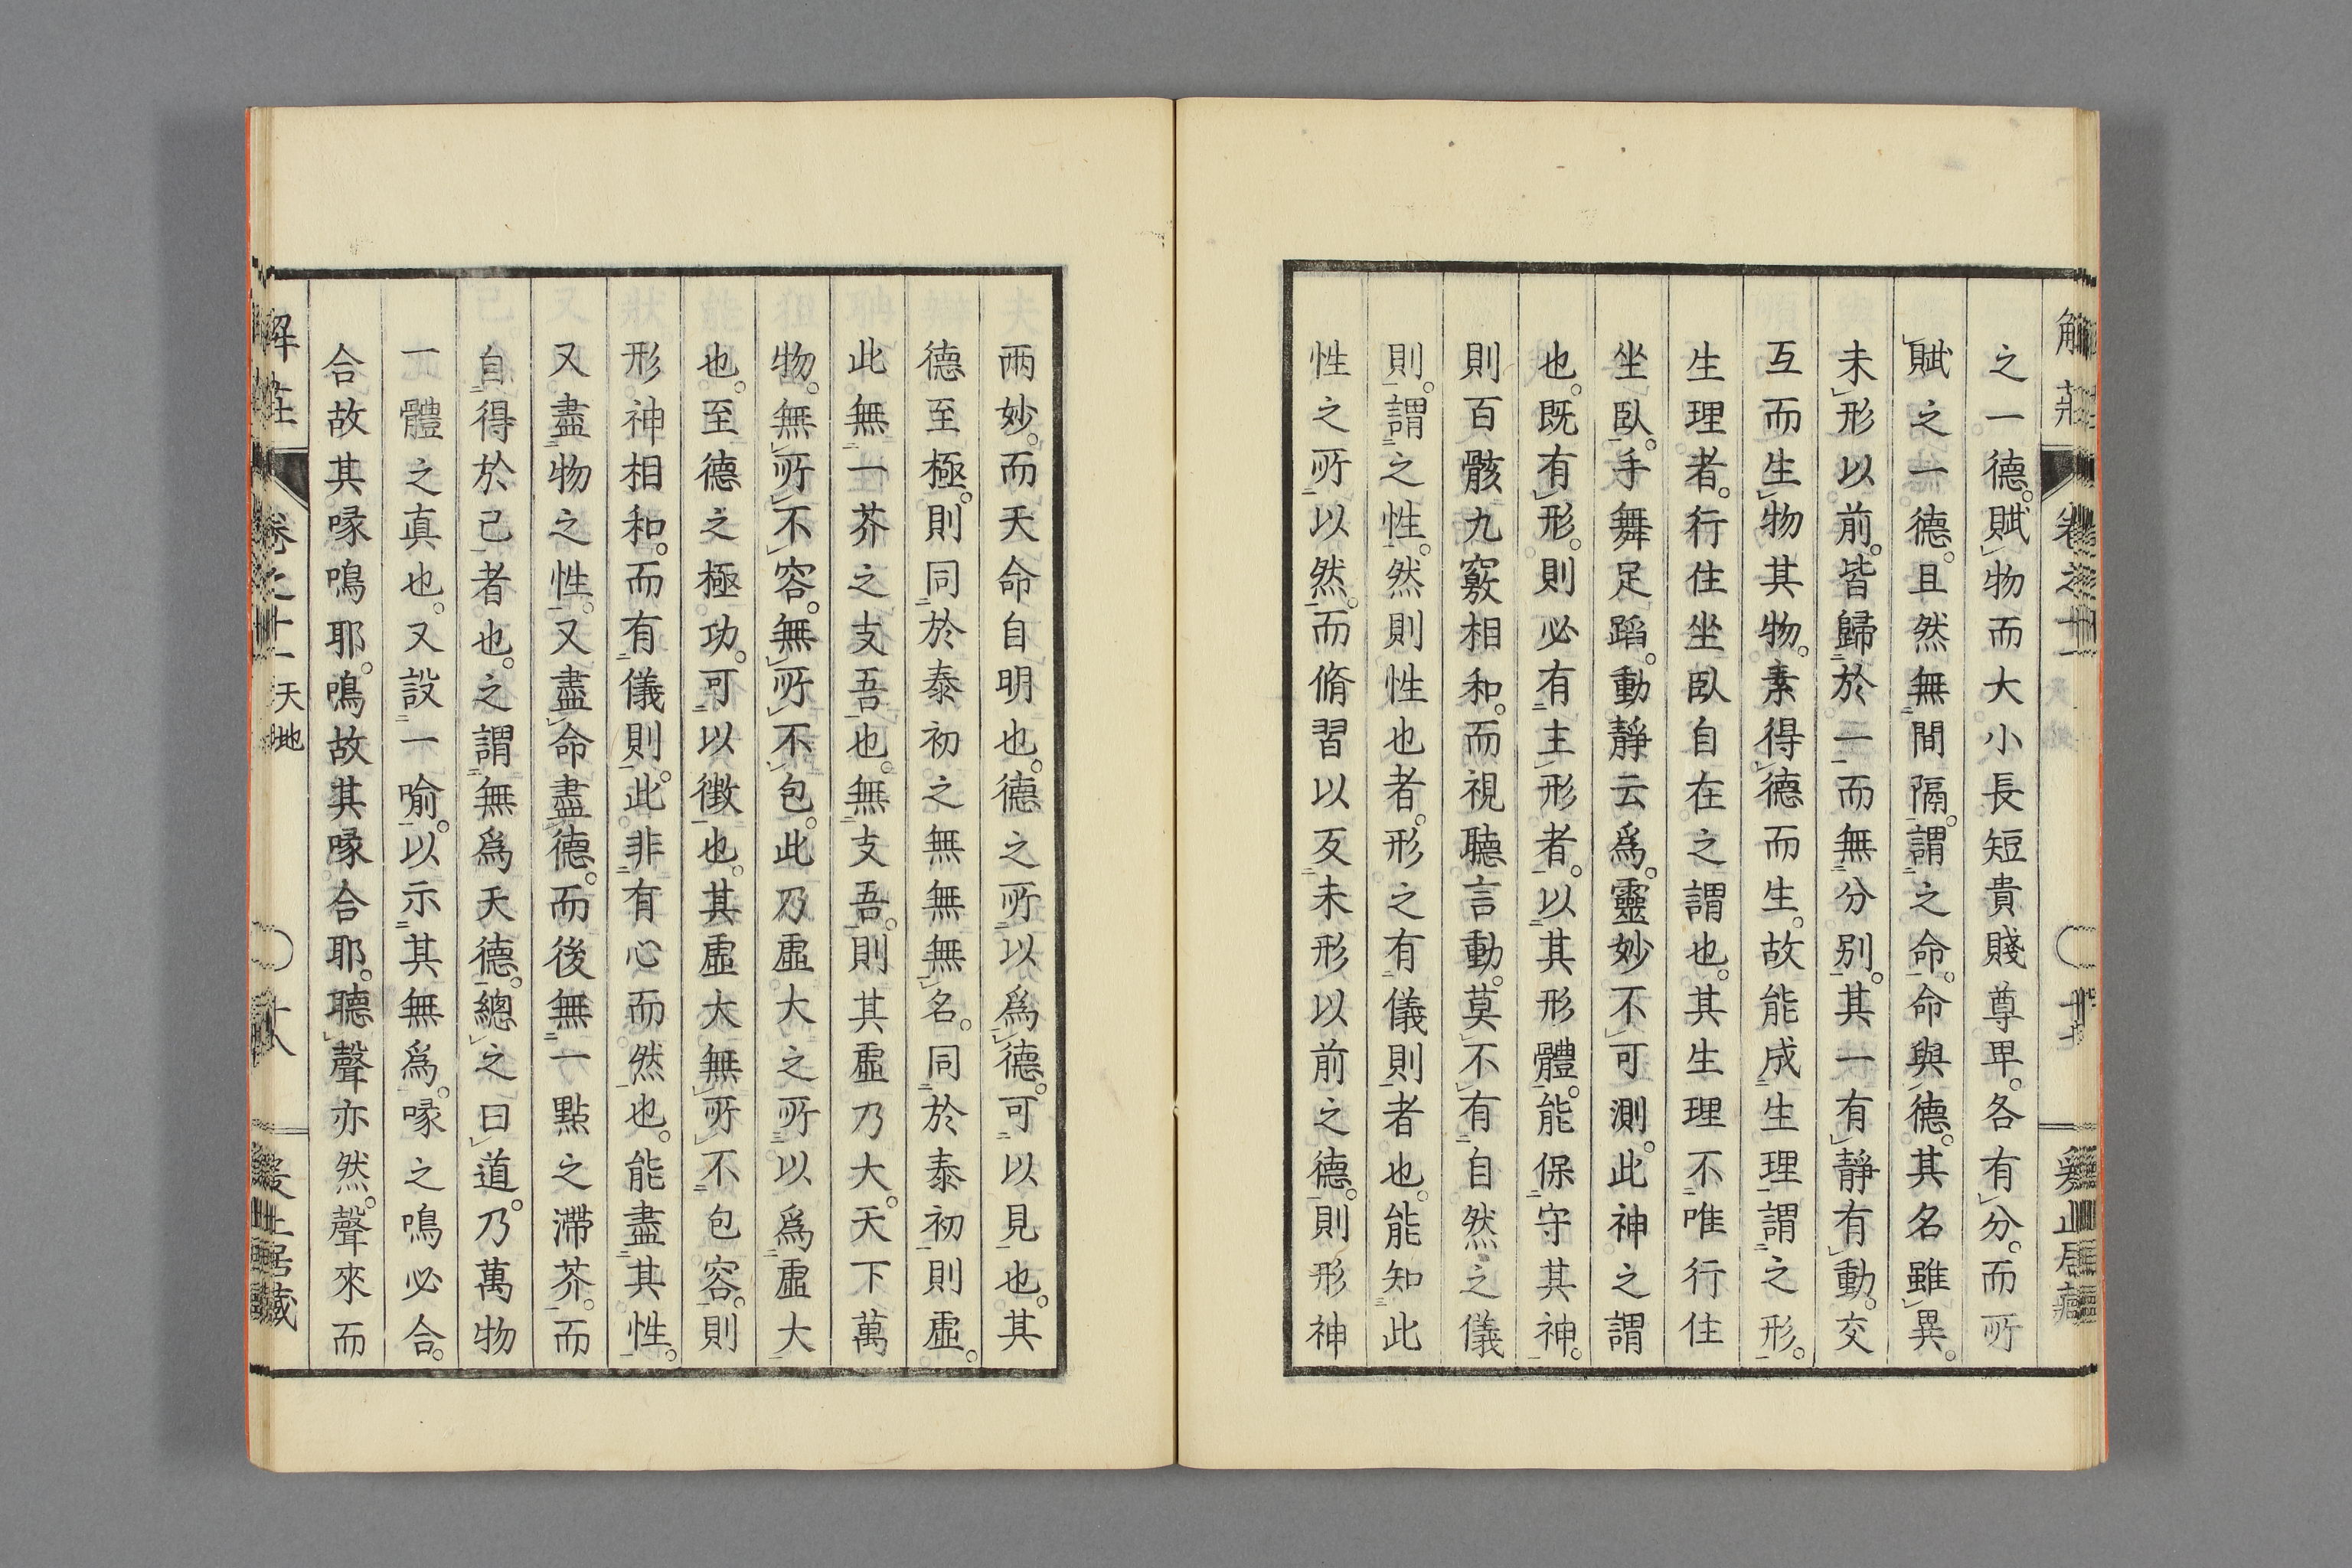 之一德。賦物而大小長短貴賤尊卑。各有分。而所
賦之一德。且然無間隔。謂之命。命與德。其名雖異。
未形以前。皆歸於一而無分別。其一有靜有動。交
互而生物其物。素得德而生。故能成生理謂之形。
生理者。行住坐臥自在之謂也。其生理不唯行住
坐臥。手舞足蹈。動靜云為。靈妙不可測。此神之謂
也。既有形。則必有主形者。以其形體。能保守其神。
則百骸九竅相和。而視聽言動。莫不有自然之儀
則。謂之性。然則性也者。形之有儀則者也。能知此
性之所以然。而脩習以反未形以前之德。則形神
解莊
卷之十一
天地
十八
兩妙。而天命自明也。德之所以為德。可以見也。其
德至極。則同於泰初之無無無名。同於泰初則虛。
此無一芥之支吾也。無支吾。則其虛乃大。天下萬
物。無所不容。無所不包。此乃虛大之所以為虛大
也。至德之極功。可以徵也。其虛大無所不包容。則
形神相和。而有儀則。此非有心而然也。能盡其性。
又盡物之性。又盡命盡德。而後無一點之滯芥。而
自得於己者也。之謂無為天德。總之曰道。乃萬物
一體之真也。又設一喻。以示其無為。喙之鳴必合。
合故其喙鳴耶。鳴故其喙合耶。聽聲亦然。聲來而